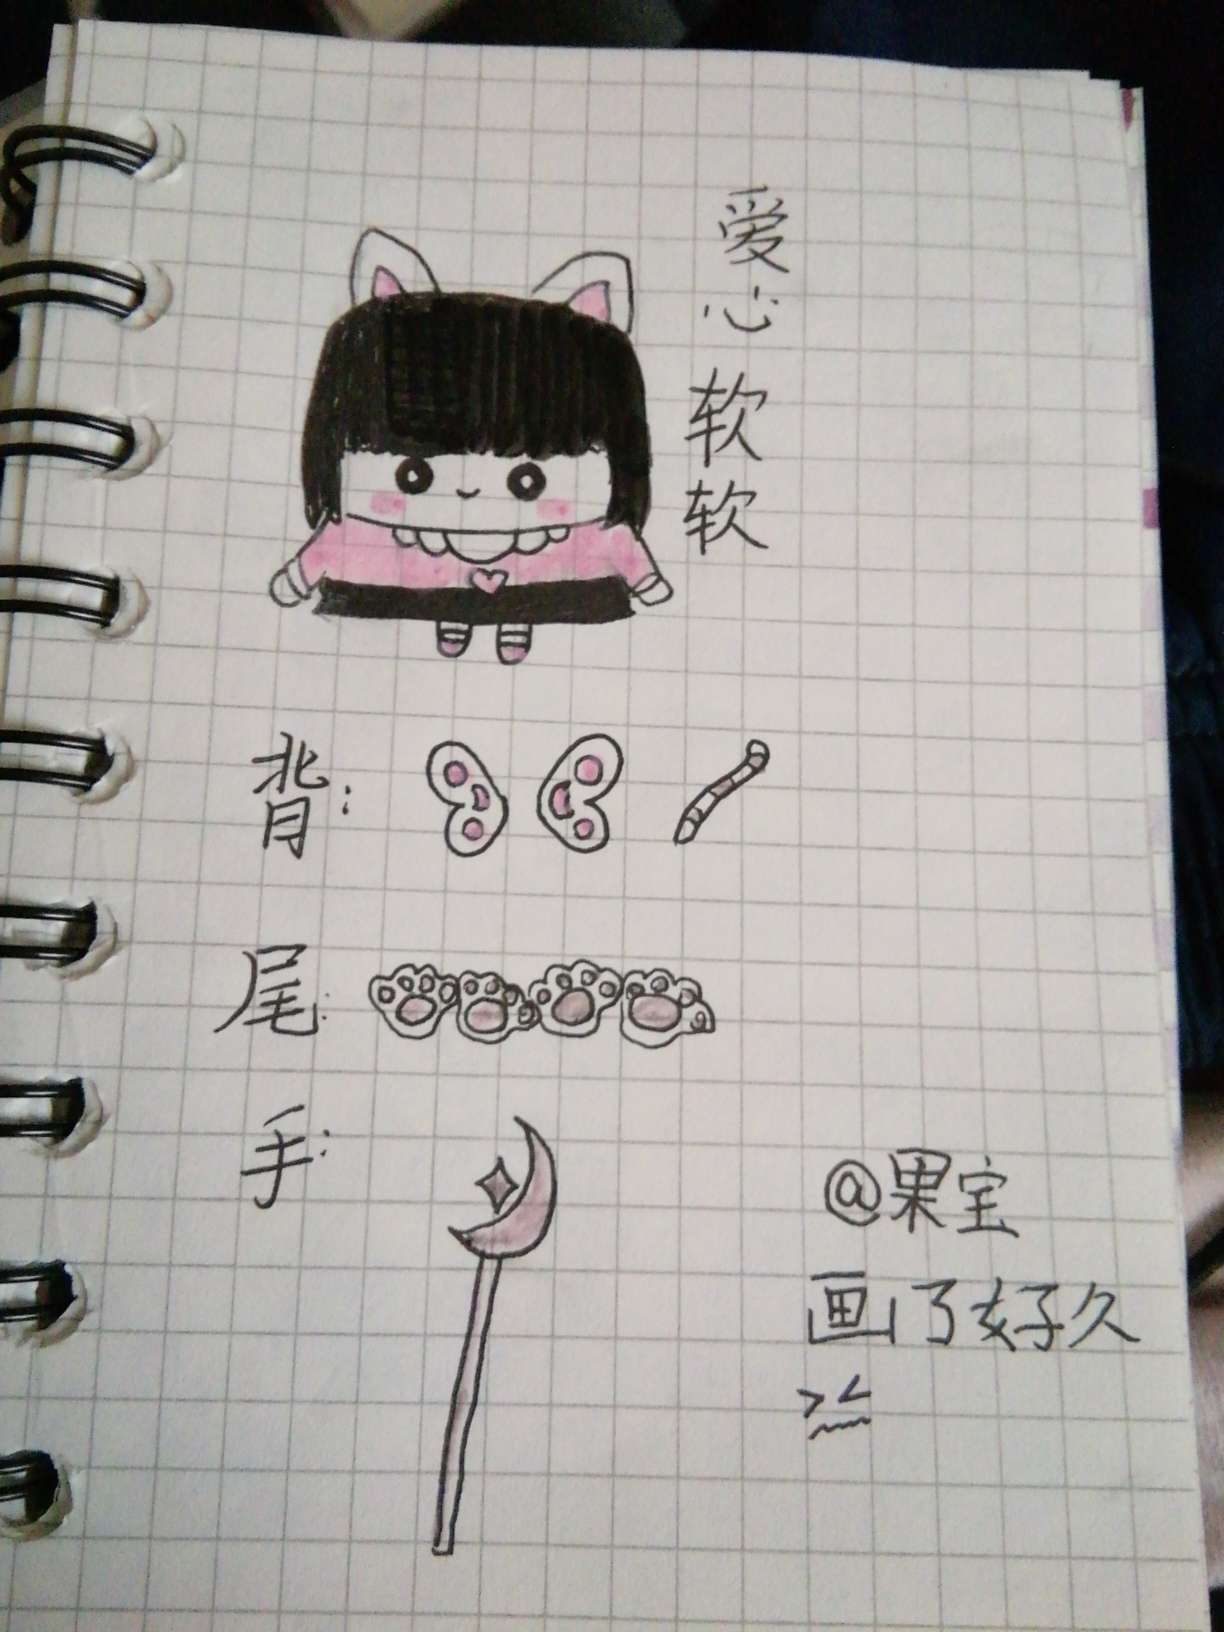 爱心软软
背:
尾:
手:
@果宝
画了好久